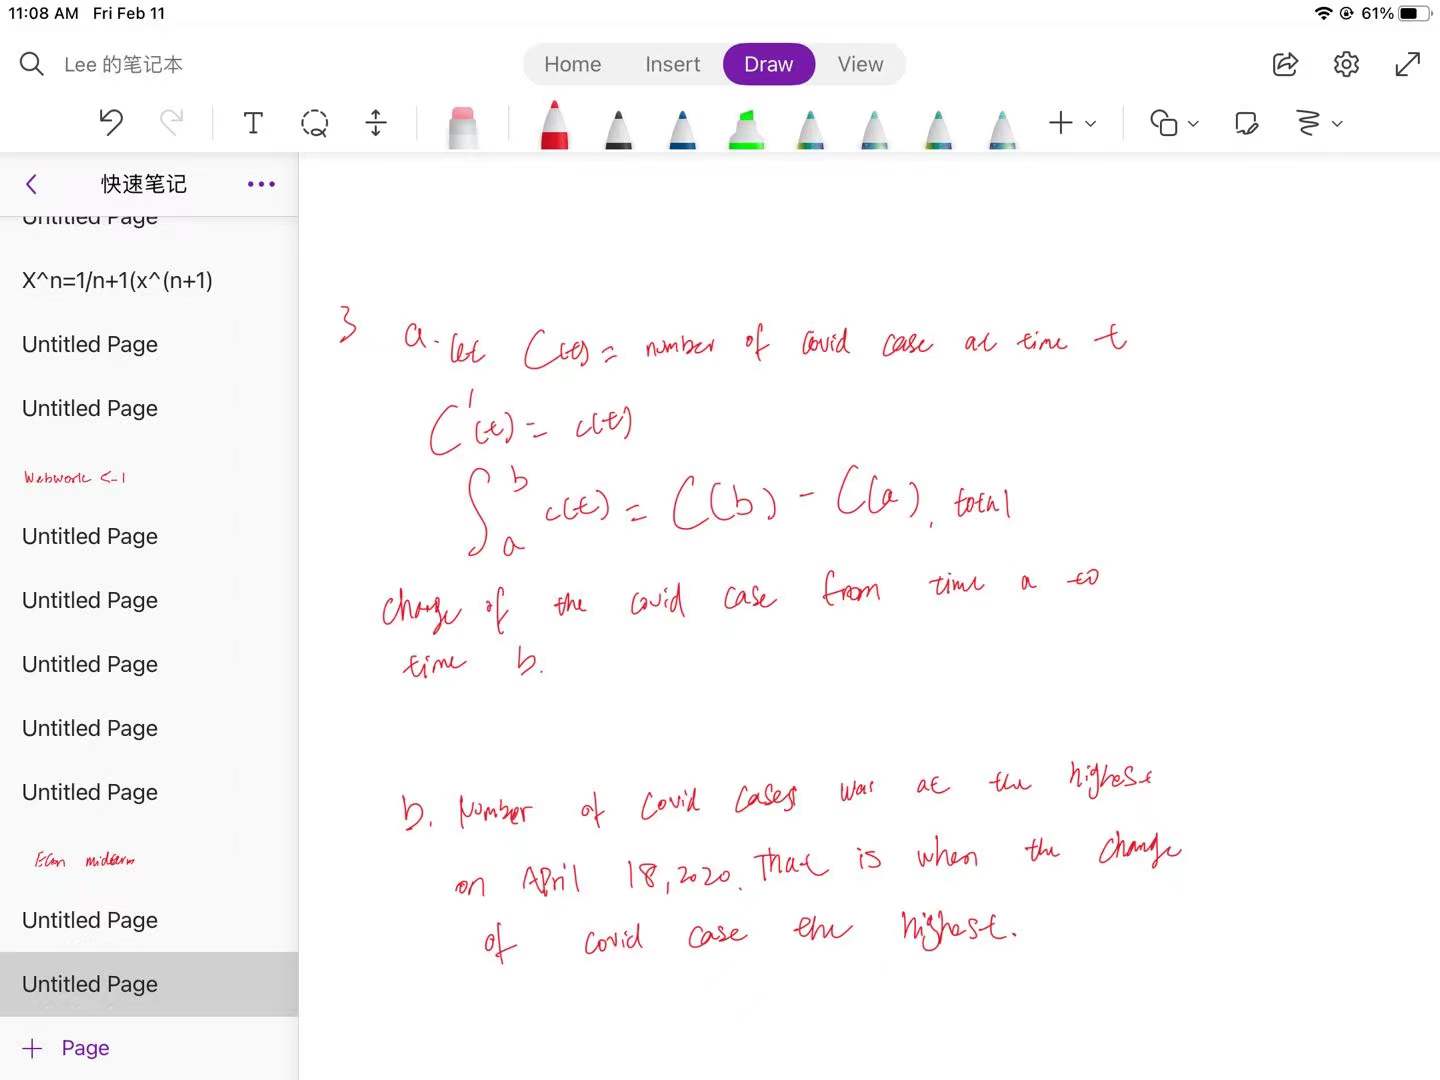 11:08 AM Fri Feb 11
61%
Lee 的笔记本
Home Insert Draw View
快速笔记
Untitled Page
X^n=1/n+1(x^(n+1)
Untitled Page
Untitled Page
Webwork <-1
Untitled Page
Untitled Page
Untitled Page
Untitled Page
Untitled Page
Econ midterm
Untitled Page
Untitled Page
Page
3 a. let C(t) = number of covid case at time t
C'(t) = c(t)
∫_a^b c(t) = C(b) - C(a), total
change of the covid case from time a to
time b.
b. Number of covid cases was at the highest
on April 18, 2020. That is when the change
of covid case the highest.